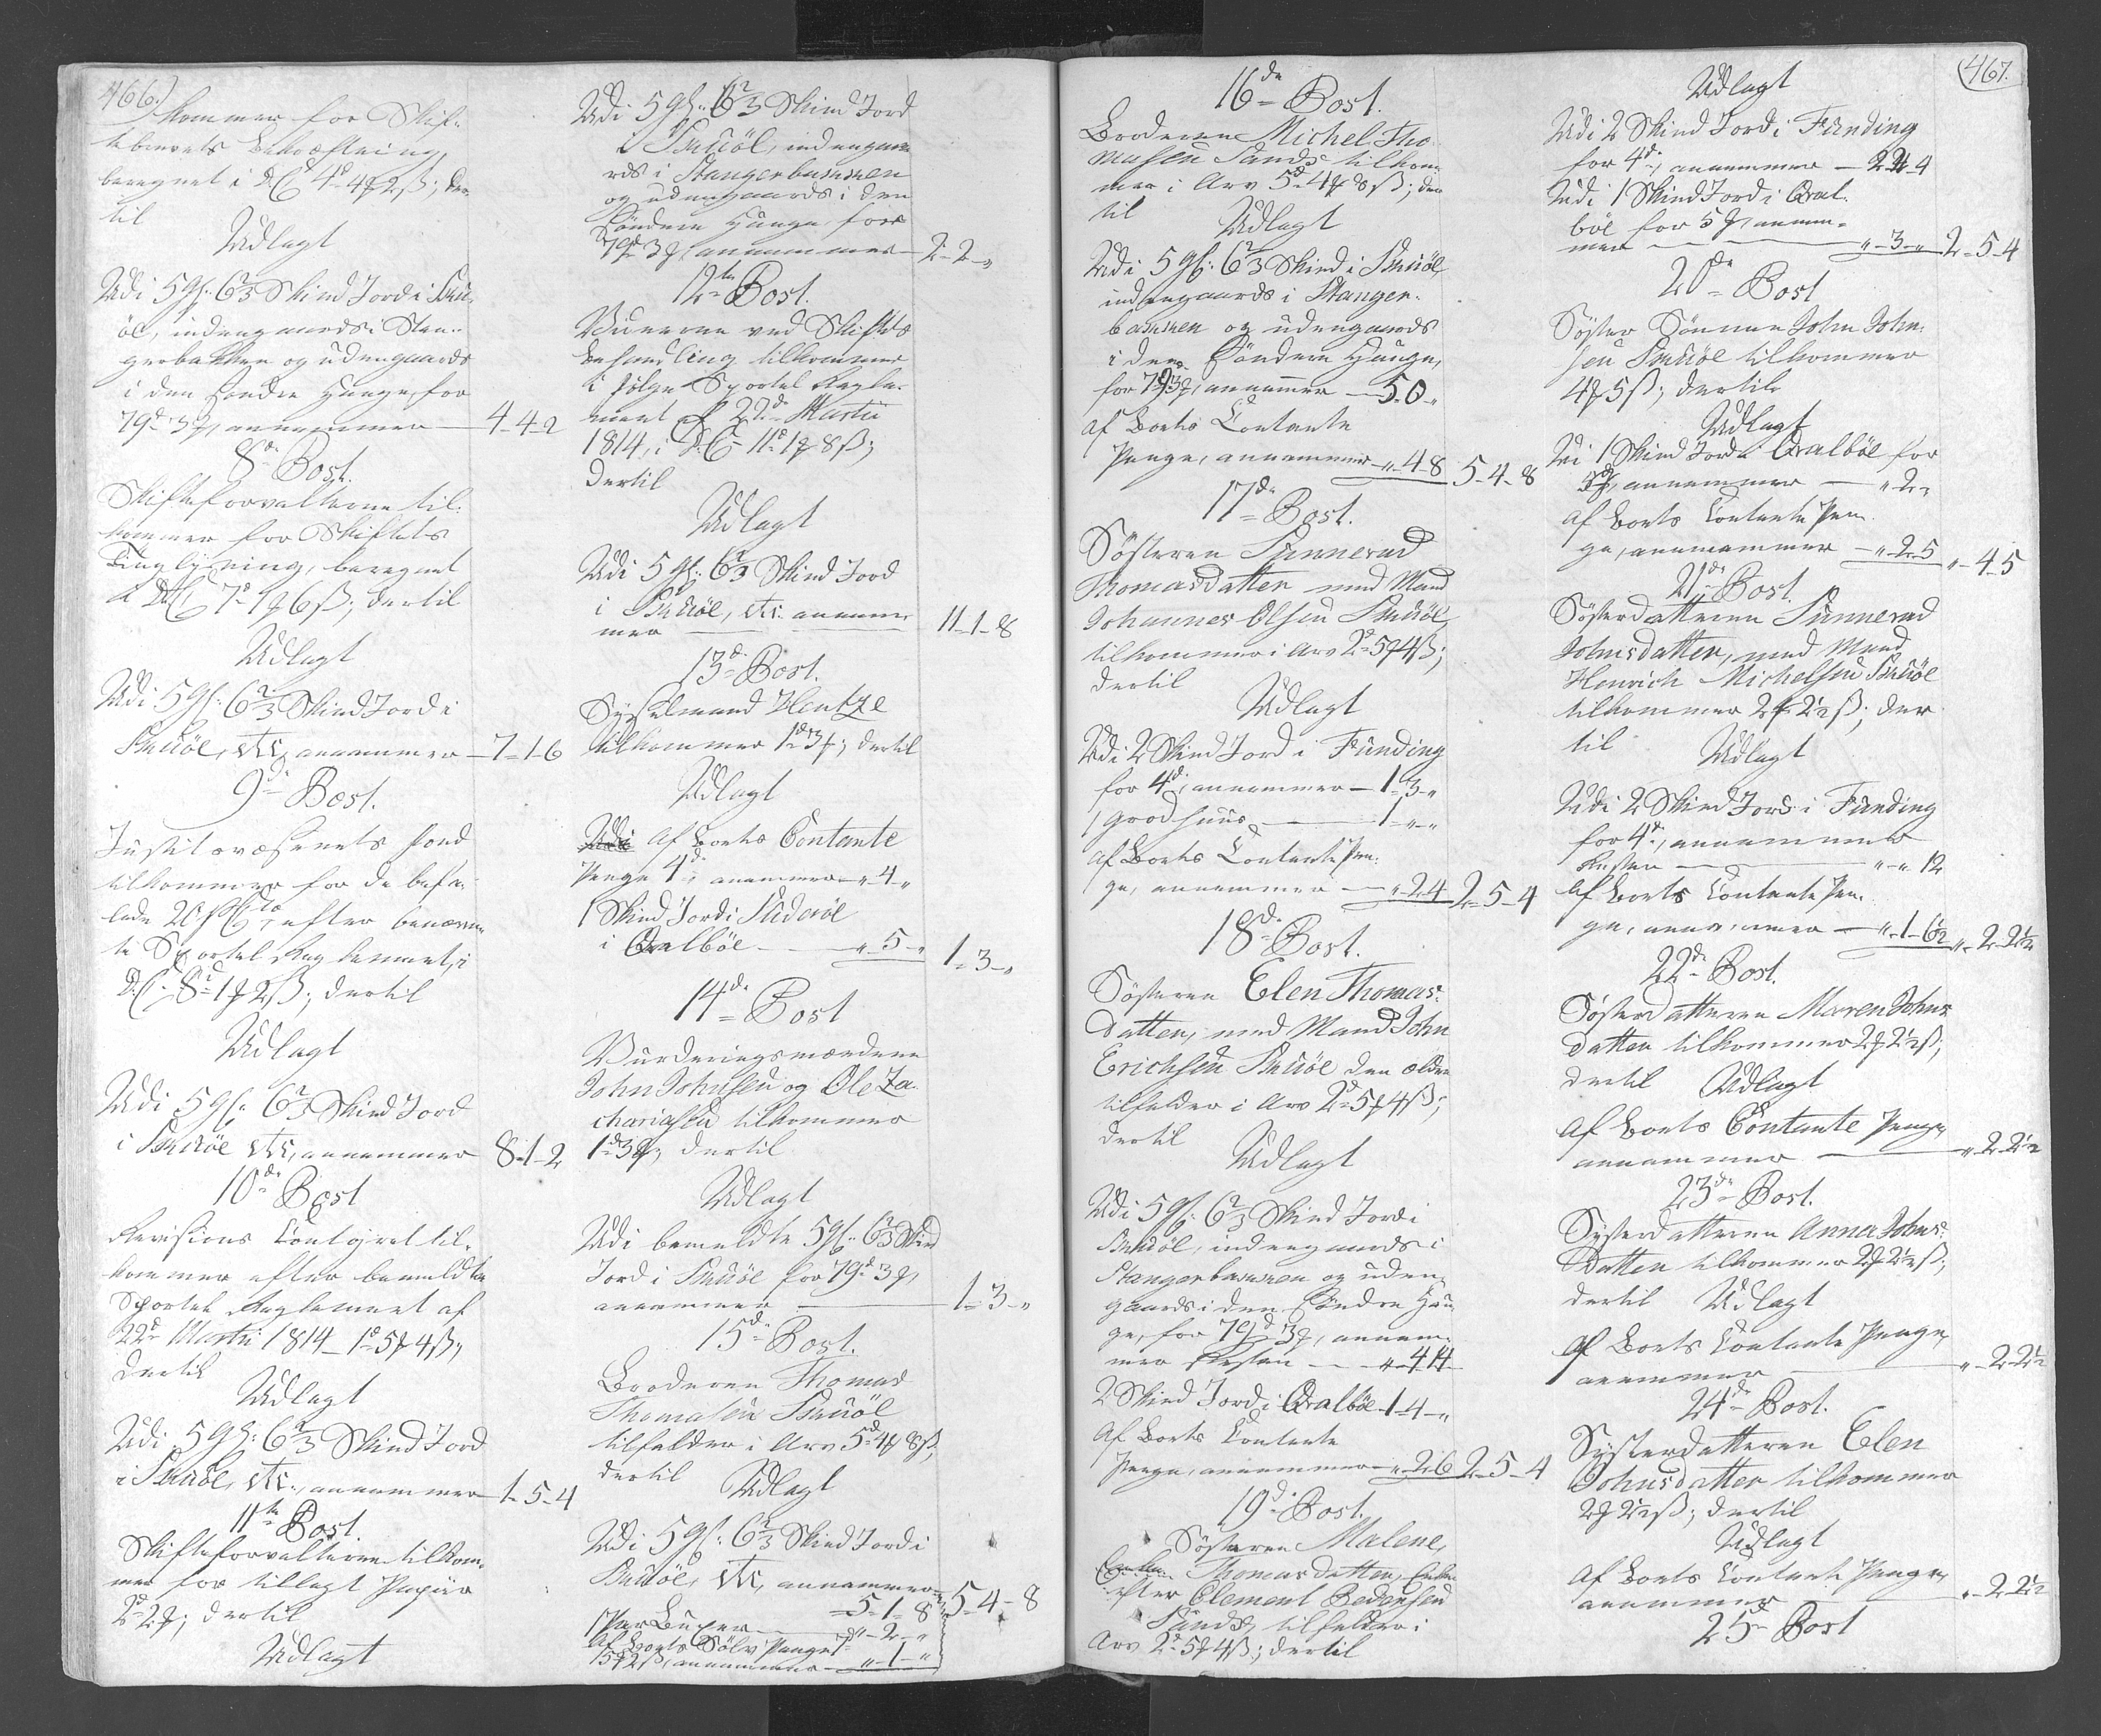 466.)
kommer for Skif-
tebrevets Bekræftning,
beregnet i D.C. 4d 4ƒ 2ß; der-
til
Udlagt
Udi 5 Gl: 6 2/3 Skind Jord i Skú-
öe, indengaards i Stan-
gerbakken og udengaards
i den søndre Hauge, for
79d 3ƒ, annammer — 4-4-2
8de Post.
Skifteforvalteren til-
kommer for Skiftets
Tinglysning, beregnet
i D.C. 7d 1ƒ 6ß; dertil
Udlagt
Udi 5 Gl: 6 2/3 Skind Jord i
Skúöe, etc, annammer — 7-1-6
9de Post.
Justitsvæsenets Fond
tilkommer for de befa-
lede 20 pC to, efter benævn-
te Sportel Reglement, i
D.C. 8d 1ƒ 2ß; dertil
Udlagt
Udi 5 Gl: 6 2/3 Skind Jord
i Skúöe etc, annammer 8-1-2
10de Post
Revisions Contoiret til-
kommer efter bemeldte
Sportel Reglement af
22de Martii 1814 1d 5ƒ 4ß;
dertil
Udlagt
Udi 5 Gl: 6 2/3 Skind Jord
i Skúöe, etc, annammer — 1-5-4
11te Post.
Skifteforvalteren tilkom-
mer for tillagt Papiir
2d 2ƒ; dertil
Udlagt
Udi 5 Gl: 6 2/3 Skind Jord
i Skúöe, indengaa-
rds i Stangerbakken
og udengaards i den
Söndere Hauge, for
79d 3ƒ annammer — 2-2-"
12te Post.
Vidnerne ved Skiftets
behandling tilkommer
i følge Sportel Regle-
ment af 22de Martii
1814, i D.C. 11d 1ƒ 8ß;
dertil
Udlagt
Udi 5 Gl: 6 2/3 Skind Jord
i Skúöe, etc. annam-
mer — 11-1-8
13de Post.
Sysselmand Hentze
tilkommer 1d 3ƒ; dertil
Udlagt
Af Boets Contante
Penge 4d annammer "-4-"
1 Skind Jord i Súderöe
i Qvalböe — "-5-" 1-3-"
14de Post
Vurderingsmændene
John Johnsen og Ole Za-
chariasen tilkommer
1d 3ƒ; dertil
Udlagt
Udi bemeldte 5 Gl: 6 2/3 Skind
Jord i Skúöe for 79d 3ƒ,
annammer — 1-3-"
15de Post.
Broderen Thomas
Thomasen Skúöe
tilfalder i Arv 5d 4ƒ 8ß;
dertil
Udlagt
Udi 5 Gl: 6 2/3 Skind Jord i
Skúöe, etc, annammer
5-1-8 5-4-8
1 Par Buxer — "-2-"
Af Boets Sølv Penge
15ƒ 2ß, annammer — "-1-"
467.
16de Post.
Broderen Michel Tho-
masen Sands tilkom-
mer i Arv 5d 4ƒ 8ß; der
til
Udlagt
Udi 5 Gl: 6 2/3 Skind i Skúöe,
indengaards i Stanger-
bakken og udengaards
i den Söndere Hauge,
for 79d 3ƒ, annammer — 5-0-"
af Boets Contante
Penge, annammer "-4-8 5-4-8
17de Post.
Søsteren Sunnevad
Thomasdatter med Mand
Johannes Olsen Skúöe,
tilkommer i Arv 2d 5ƒ 4ß;
dertil
Udlagt
Udi 2 Skind Jord i Fúnding
for 4d, annammer — 1-3-"
1 Groehuus — 1-"-"
Af Boets Contante Pen-
ge, annammer — "-2-4 2-5-4
18de Post.
Søsteren Elen Thomas-
datter, med Mand John
Erichsen Skúöe den ældre
tilfalder i Arv 2d 5ƒ 4ß;
dertil
Udlagt
Udi 5 Gl: 6 2/3 Skind Jord i
Skúöe, indengaards i
Stangerbakken og uden-
gaards i den söndre Hau-
ge, for 79d 3ƒ, annam-
mer Resten — "-4-14
2 Skind Jord i Qvalböe 1-4-"
Af Boets Contante
Penge, annammer "-2-6 2-5-4
19de Post.
Søsteren Malene
Thomasdatter, Enke
efter Clement Pedersen
Sands, tilfalder i
Arv 2d 5ƒ 4ß; dertil
Udlagt
Udi 2 Skind Jord i Fúnding
for 4d, annammer — 2-2-4
Udi 1 Skind Jord i Qval-
böe for 5ƒ, annam-
mer — "-3-" 2-5-4
20de Post
Søster Sönnen John John-
sen Skúöe tilkommer
4ƒ 5ß; dertil
Udlagt
Udi 1 Skind Jord i Qvalböe for
5ƒ, annammer — "-2-"
Af Boets Contante Pen-
ge, annammer — "-2-5 "-4-5
21de Post.
Søsterdatteren Sunnevad
Johnsdatter, med Mand
Henrich Michelsen Skúöe
tilkommer 2ƒ 2½ß; der
til
Udlagt
Udi 2 Skind Jord i Fúnding
for 4d, annammer
Resten — "-"-12
Af Boets Contante Pen-
ge, annammer — "-1-6½ "-2-2½
22de Post.
Søsterdatteren Maren Johns-
datter tilkommer 2ƒ 2½ß;
dertil Udlagt
Af Boets Contante Penge,
annammer — "-2-2½
23de Post.
Systerdatteren Anna Johns-
datter tilkommer 2ƒ 2½ß;
dertil Udlagt
Af Boets Contante Penge,
annammer — "-2-2½
24de Post.
Systerdatteren Elen
Johnsdatter tilkommer
2ƒ 2½ß; dertil
Udlagt
Af Boets Contante Penge,
annammer — "-2-2½
25de Post